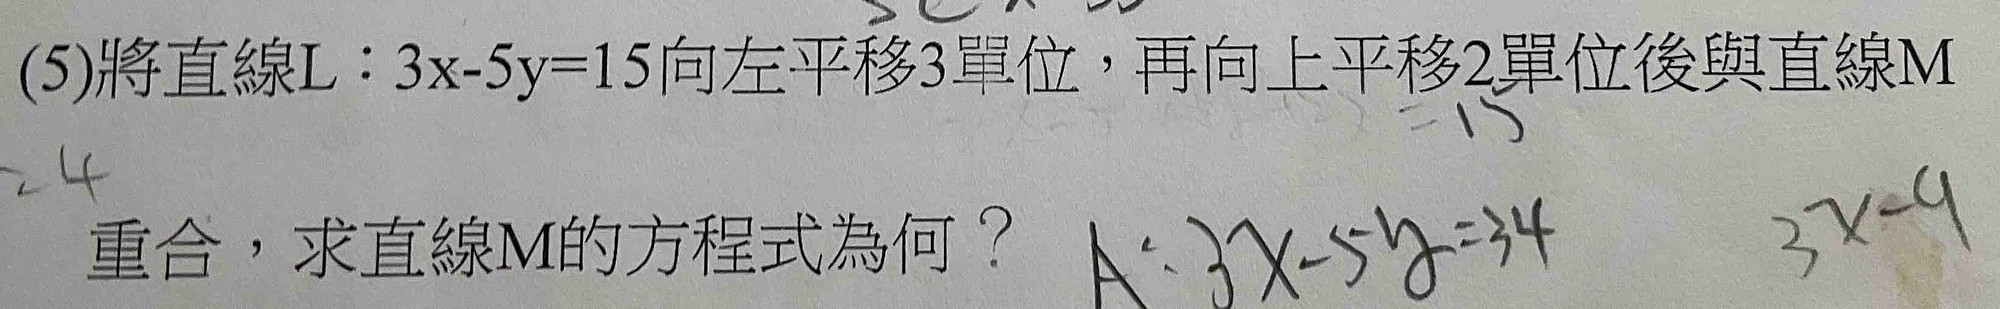 (5)將直線L：3x-5y=15向左平移3單位，再向上平移2單位後與直線M
=15
=4
重合，求直線M的方程式為何？ A：3x-5y=34
3x-9